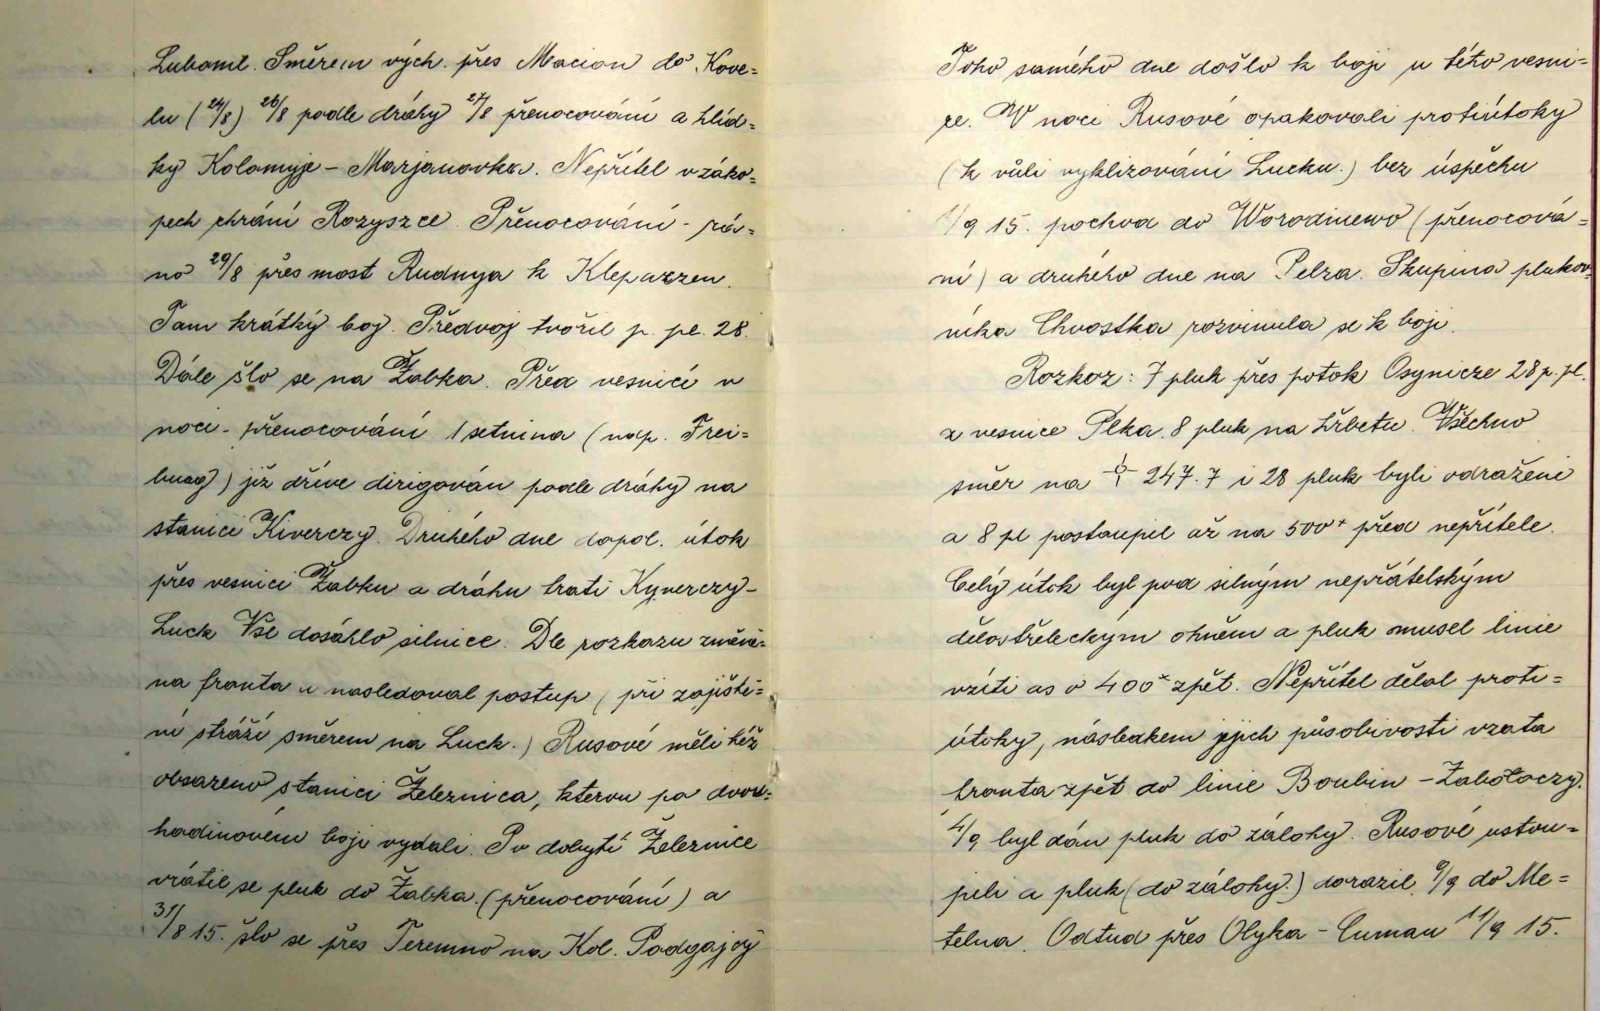 Luboml. Směrem vých. přes Macion do Kove=
lu (24/8) 26/8 podle dráhy 27/8 přenocování a hlíd=
ky Kolomyje – Marjanovka. Nepřítel v záko=
pech chrání Rozyszce. Přenocování - rá=
no 29/8 přes most Rudnya k Klepaczen.
Tam krátký boj. Předvoj tvořil p. pl. 28.
Dále šlo se na Žabka. Před vesnicí v
noci - přenocování 1 setnina (nap. Frei=
burg) již dříve dirigován podle dráhy na
stanici Kiverczy. Druhého dne dopol. útok
přes vesnici Žabku a dráhu trati Kyverczy –
Luck Vše dosáhlo silnice. Dle rozkazu změně=
na fronta a nasledoval postup (při zajiště=
ní stráží směrem na Luck.) Rusové měli též
obsazeno stanici Železnica, kterou po dvou=
hodinovém boji vydali. Po dobytí Železnice
vrátil se pluk do Žabka. (přenocování) a
31/8 15. šlo se přes Teremno na Kol. Podgajcy
Toho samého dne došlo k boji u této vesni=
ce. V noci Rusové opakovali protiútoky
(k vůli vyklizování Lucku.) bez úspěchu
1/9 15. pochod do Worodinewo (přenocová=
ní) a druhého dne na Pelza. Skupina plukov=
níka Chvostka rozvinula se k boji.
Rozkaz: 7 pluk přes potok Osynicze 28 p. pl.
z vesnice Pelka. 8 pluk na hřbetu. Všechno
směr na 247. 7 i 28 pluk byli odraženi
a 8 pl postoupil až na 500ˣ před nepřítele.
Celý útok byl pod silným nepřátelským
dělostřeleckým ohněm a pluk musel linie
vzíti as o 400ˣ zpět. Nepřítel dělal proti=
útoky, následkem jejich působivosti vzata
fronta zpět do linie Boubin – Zabołoczy.
4/9 byl dán pluk do zálohy. Rusové ustou=
pili a pluk (do zálohy.) dorazil 9/9 do Me=
telna. Odtud přes Olyka – Cuman 11/9 15.